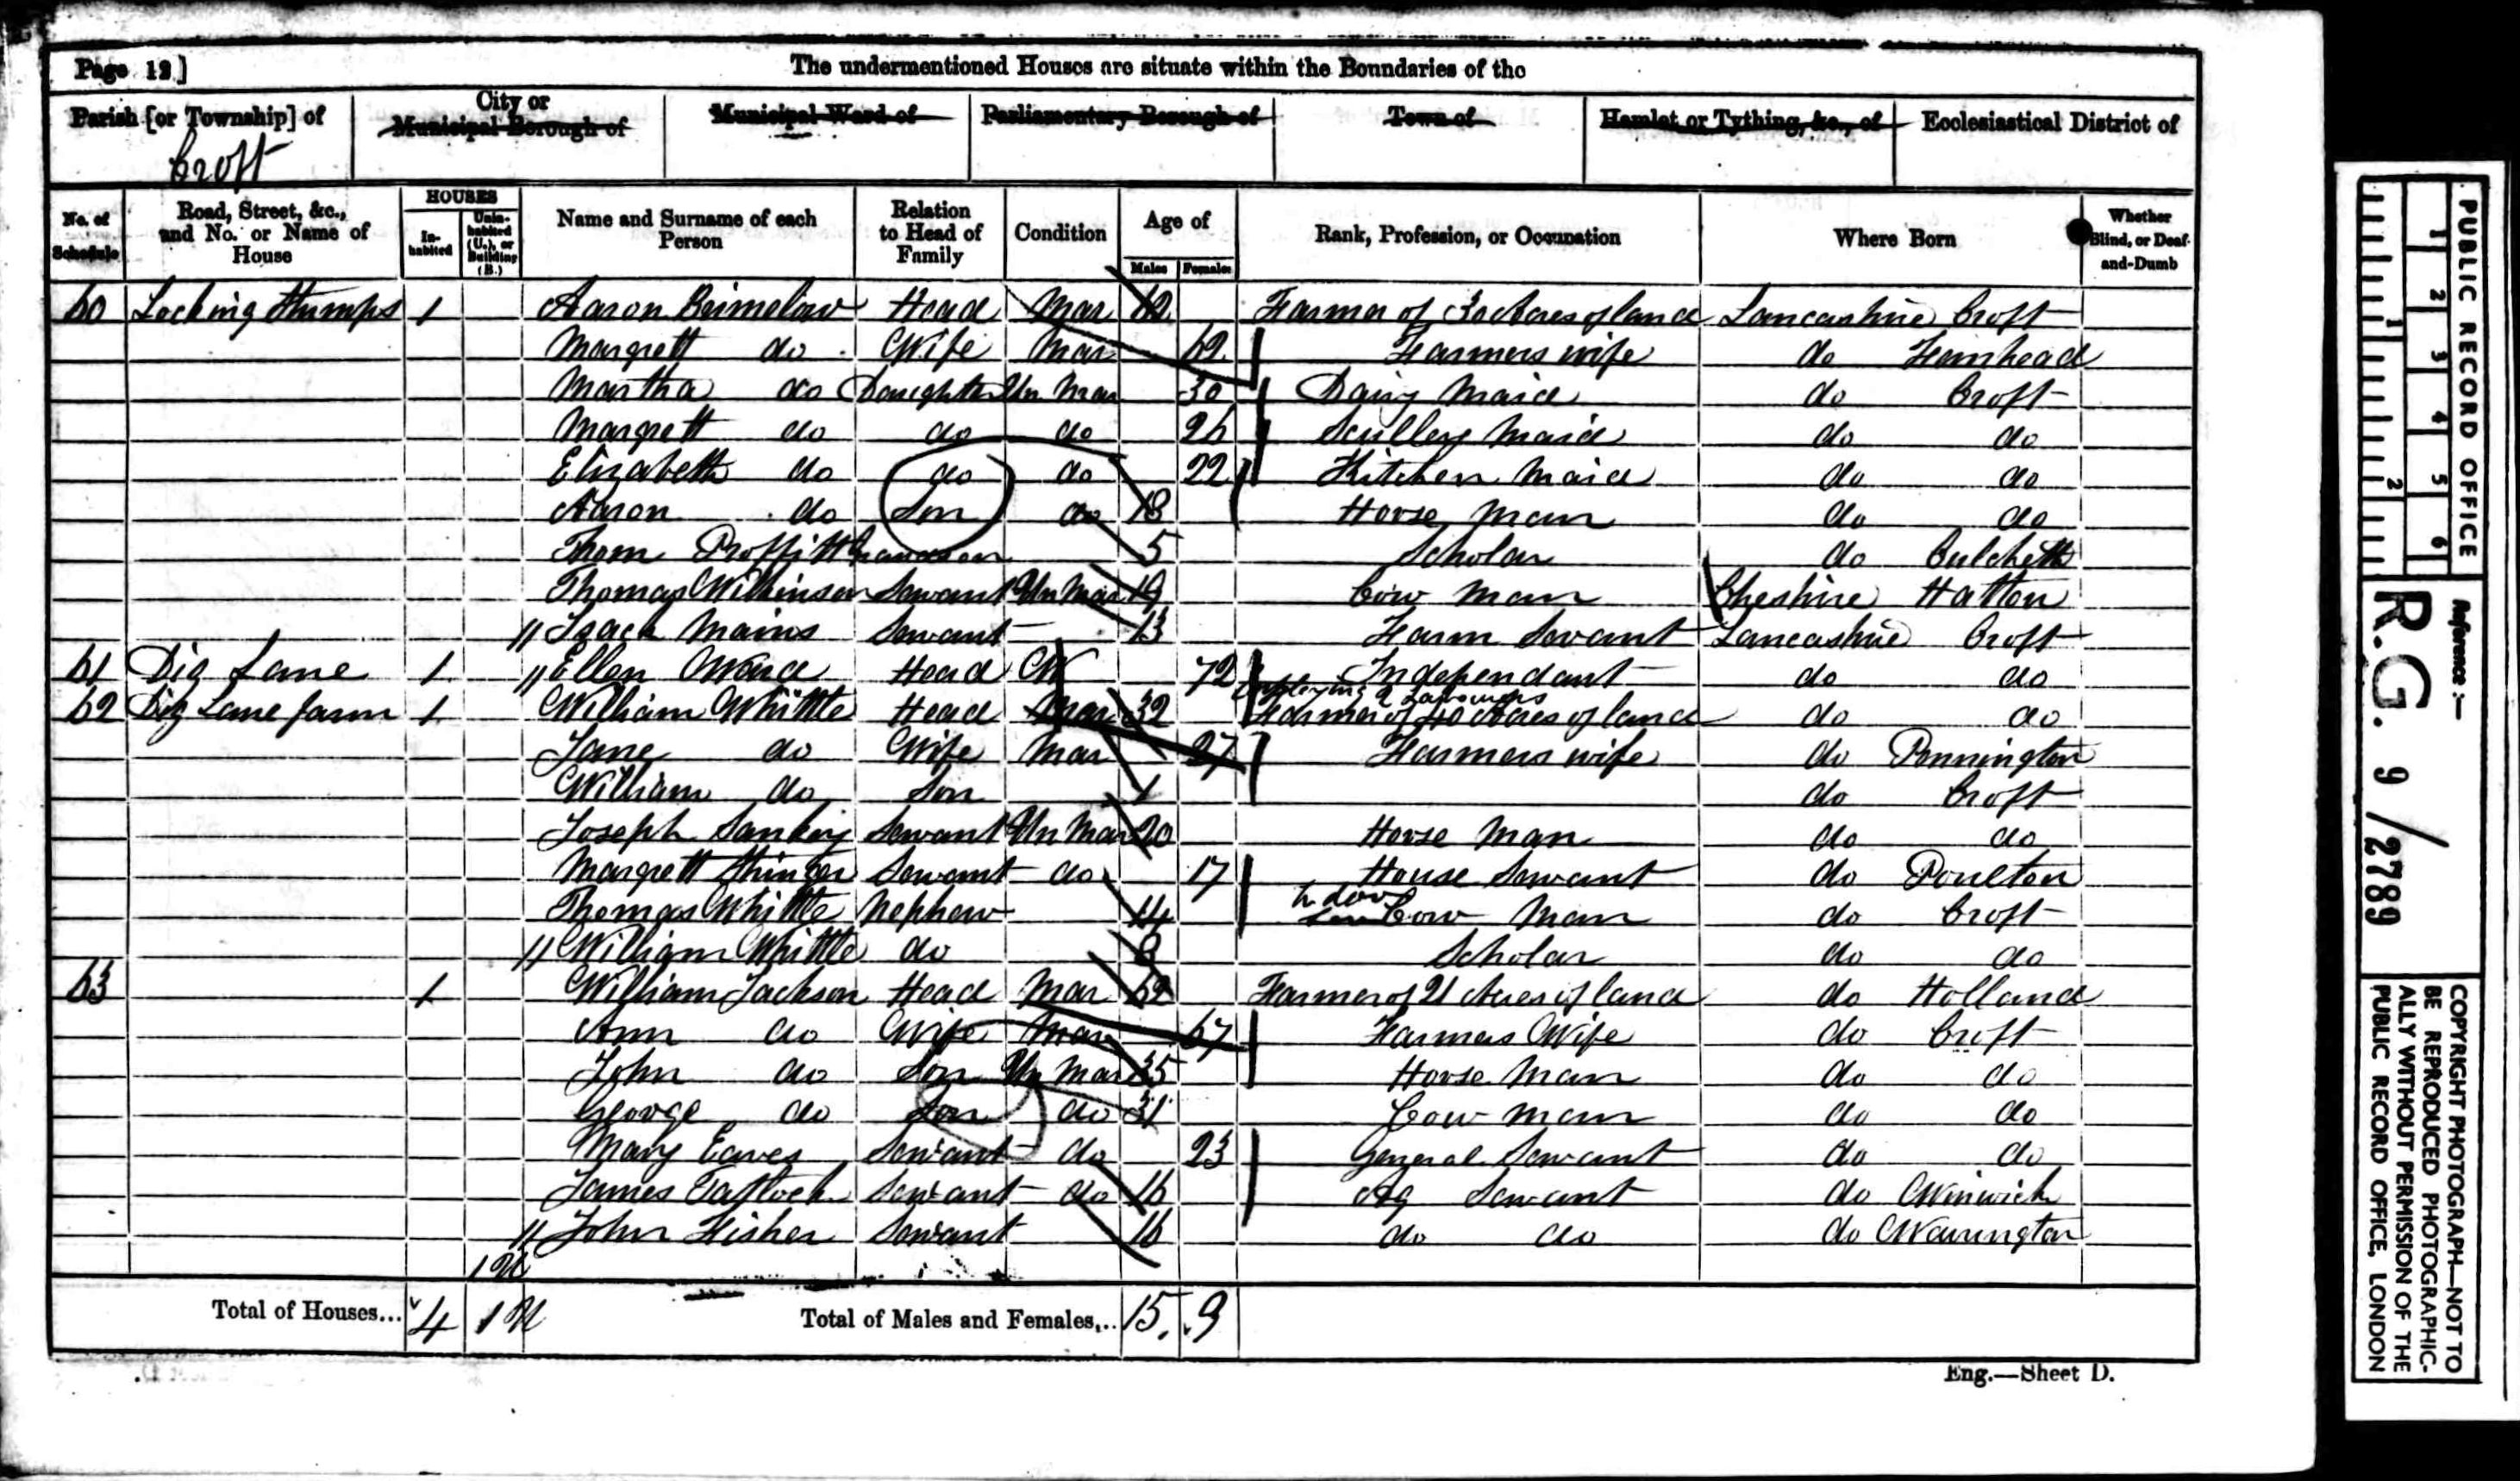 Page 12]
The undermentioned Houses are situate within the Boundaries of the
Parish [or Township] of
Croft
City or
Municipal Borough of
Municipal Ward of
Parliamentary Borough of
Town of
Hamlet or Tything, &c., of
Ecclesiastical District of
No. of Schedule
Road, Street, &c., and No. or Name of House
HOUSES
Inhabited
Uninhabited (U.), or Building (B.)
Name and Surname of each Person
Relation to Head of Family
Condition
Age of
Males
Females
Rank, Profession, or Occupation
Where Born
Whether Blind, or Deaf-and-Dumb
60 Locking Stumps 1 Aaron Brimelow Head Mar 62 Farmer of 30 Acres of land Lancashire Croft
Margrett do Wife Mar 62 Farmers wife do Fearnhead
Martha do Daughter Un Mar 30 Dairy Maid do Croft
Margrett do do do 26 Scullery Maid do do
Elizabeth do do do 22 Kitchen Maid do do
Aaron do Son do 18 Horse Man do do
Thom Proffitt Grandson 5 Scholar do Culcheth
Thomas Wilkinson Servant Un Mar 19 Cow Man Cheshire Hatton
// Isack Mains Servant 13 Farm Servant Lancashire Croft
61 Dig Lane 1 // Ellen Ward Head W 72 Independant do do
Employing 2 Labourers
62 Dig Lane farm 1 William Whittle Head Mar 32 Farmer of 40 Acres of land do do
Jane do Wife Mar 27 Farmers wife do Pennington
William do Son 1 do Croft
Joseph Sankey Servant Un Mar 20 Horse Man do do
Margrett Stringer Servant do 17 House Servant do Poulton
Thomas Whittle Nephew 14 Cow Man do Croft
// William Whittle do 9 Scholar do do
63 1 William Jackson Head Mar 62 Farmer of 21 Acres of land do Holland
Ann do Wife Mar 67 Farmers Wife do Croft
John do Son Un Mar 35 Horse Man do do
George do Son do 31 Cow Man do do
Mary Eaves Servant do 23 General Servant do do
James Tatlock Servant do 16 Ag Servant do Winwick
// John Fisher Servant 16 do do do Warrington
Total of Houses... 4 1 U Total of Males and Females... 15 9
Eng.—Sheet D.
PUBLIC RECORD OFFICE
1 2 3 4 5 6
1 2
Reference :—
R.G. 9 / 2789
COPYRIGHT PHOTOGRAPH—NOT TO
BE REPRODUCED PHOTOGRAPHIC-
ALLY WITHOUT PERMISSION OF THE
PUBLIC RECORD OFFICE, LONDON